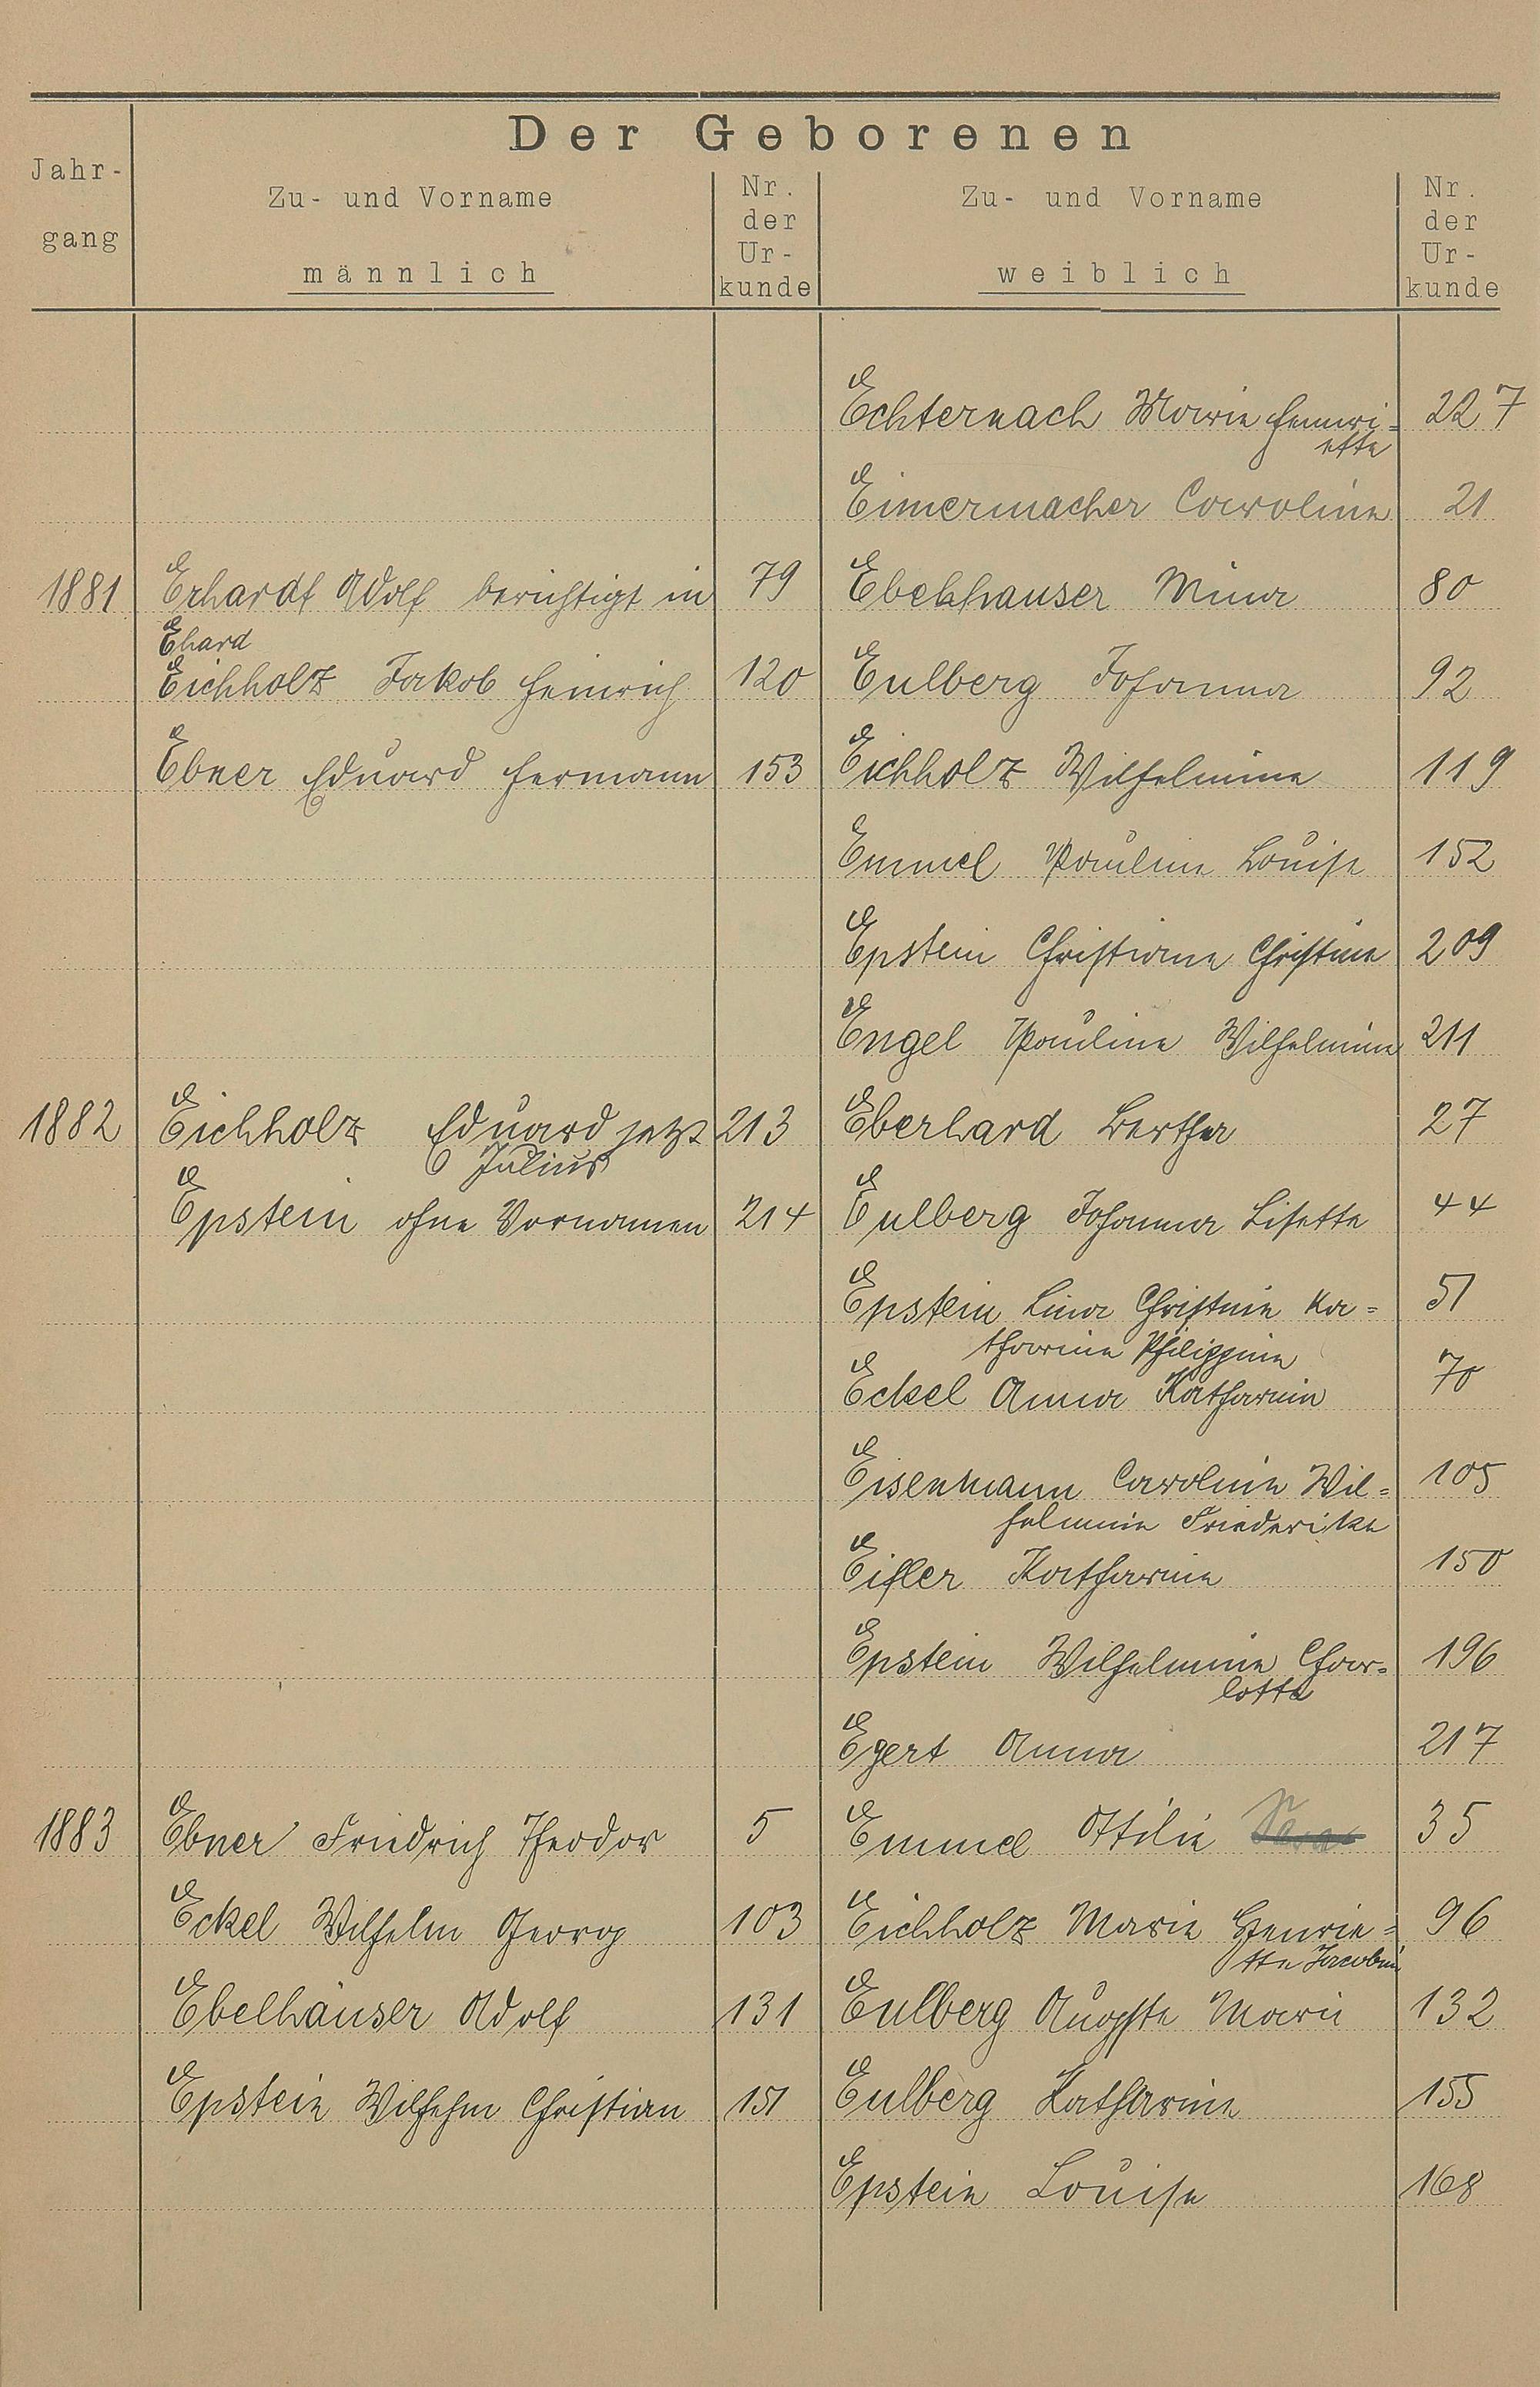 Der Geborenen
Jahr-
gang
Zu- und Vorname
männlich
Nr.
der
Ur-
kunde
Zu- und Vorname
weiblich
Nr.
der
Ur-
kunde
Echternach Marie Henri= 227
ette
Eimermacher Caroline 21
1881 Erhardt Adolf berichtigt in 79 Ebelhauser Mina 80
Ehard
Eichholz Jakob Heinrich 120 Eulberg Johanna 92
Ebner Eduard Hermann 153 Eichholz Wilhelmine 119
Emmel Pauline Louise 152
Epstein Christiane Christine 209
Engel Pauline Wilhelmine 211
1882 Eichholz Eduard jetzt 213 Eberhard Bertha 27
Julius
Epstein ohne Vornamen 214 Eulberg Johanna Lisette 44
Epstein Lina Christine Ka= 51
tharine Philippine
Eckel Anna Katharine 70
Eisenmann Caroline Wil= 105
helmine Friederike
Eifler Katharine 150
Epstein Wilhelmine Char= 196
lotte
Egert Anna 217
1883 Ebner Friedrich Theodor 5 Emmel Ottilie 35
Eckel Wilhelm Georg 103 Eichholz Marie Henrie= 96
tte Jacobine
Ebelhäuser Adolf 131 Eulberg Auguste Marie 132
Epstein Wilhelm Christian 151 Eulberg Katharine 155
Epstein Louise 168